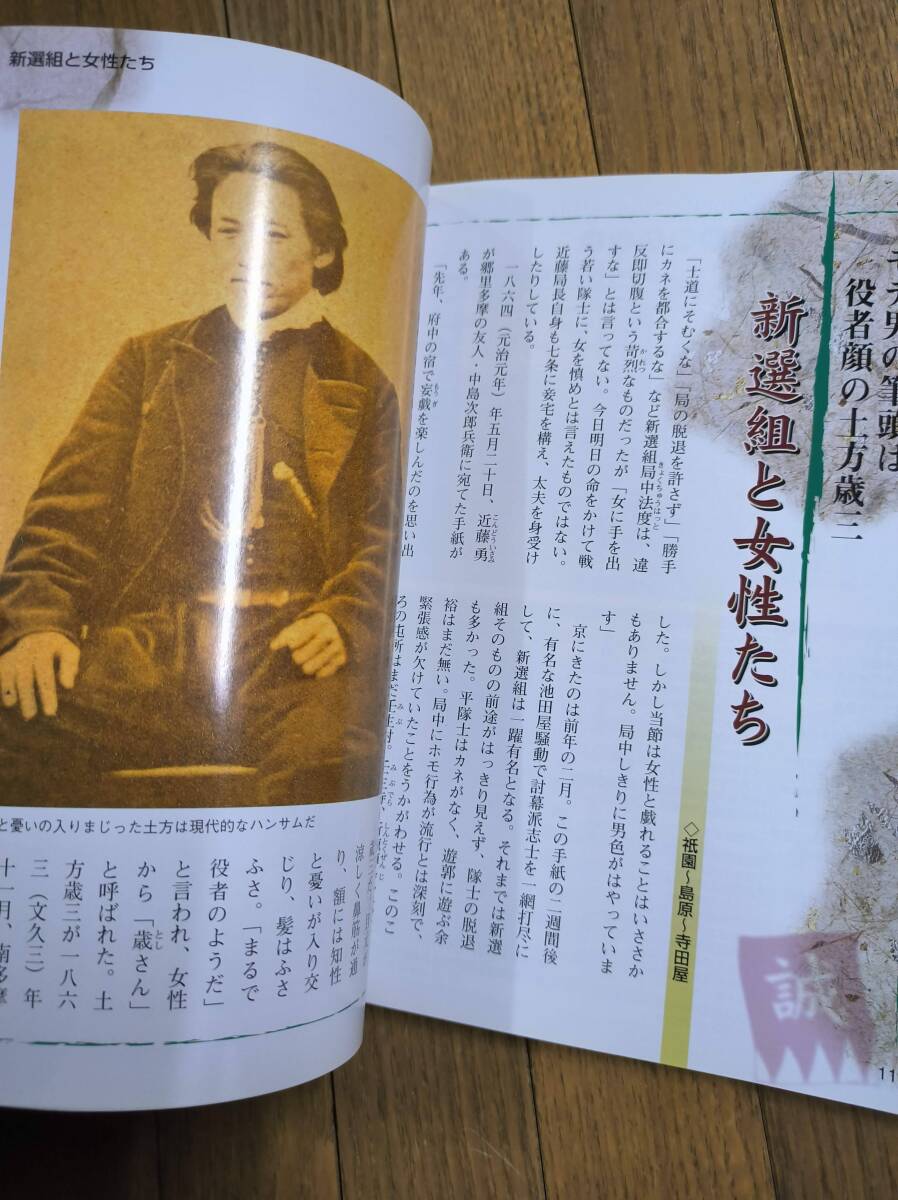 モテ男の筆頭は
役者顔の土方歳三
新選組と女性たち
◇祇園～島原～寺田屋
「士道にそむくな」「局の脱退を許さず」「勝手
にカネを都合するな」など新選組局中法度は、違
きょくちゅうはっと
反即切腹という苛烈なものだったが「女に手を出
かれつ
すな」とは言ってない。今日明日の命をかけて戦
う若い隊士に、女を慎めとは言えたものではない。
近藤局長自身も七条に妾宅を構え、太夫を身受け
したりしている。
一八六四（元治元年）年五月二十日、近藤勇
こんどういさみ
が郷里多摩の友人・中島次郎兵衛に宛てた手紙が
ある。
「先年、府中の宿で妄戯を楽しんだのを思い出
もうぎ
した。しかし当節は女性と戯れることはいささか
もありません。局中しきりに男色がはやっていま
す」
京にきたのは前年の二月。この手紙の二週間後
に、有名な池田屋騒動で討幕派志士を一網打尽に
して、新選組は一躍有名となる。それまでは新選
組そのものの前途がはっきり見えず、隊士の脱退
も多かった。平隊士はカネがなく、遊郭に遊ぶ余
裕はまだ無い。局中にホモ行為が流行とは深刻で、
緊張感が欠けていたことをうかがわせる。このこ
ろの屯所はまだ壬生村。
みぶ
みぶでら
誠
11
新選組と女性たち
と憂いの入りまじった土方は現代的なハンサムだ
涼しく鼻筋が通
り、額には知性
と憂いが入り交
じり、髪はふさ
ふさ。「まるで
役者のようだ」
と言われ、女性
から「歳さん」
とし
と呼ばれた。土
方歳三が一八六
三（文久三）年
十一月、南多摩